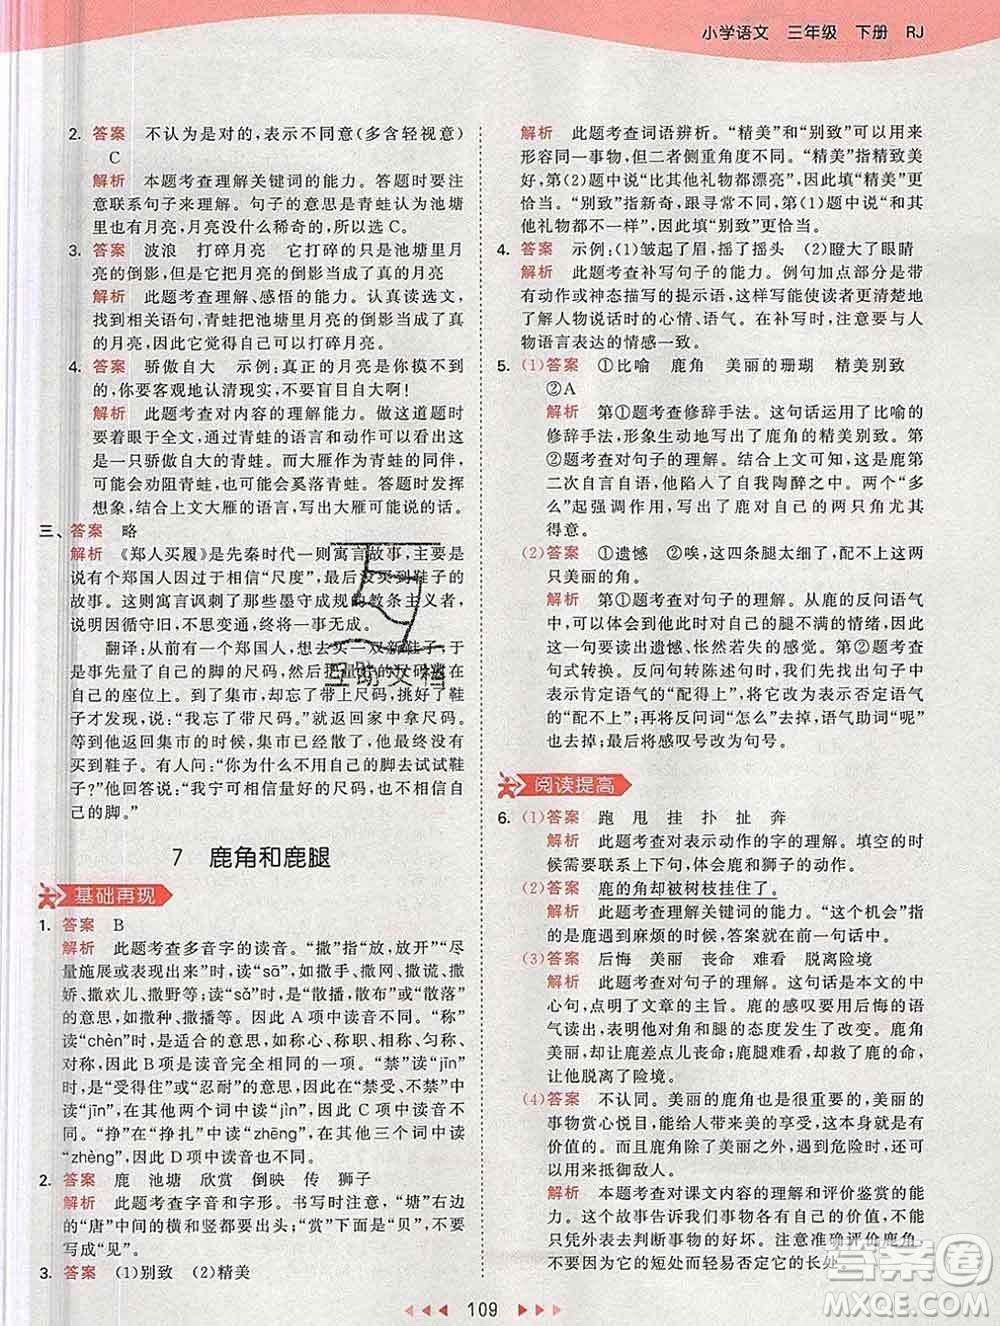 小学语文 三年级 下册 RJ
2. 答案 不认为是对的,表示不同意(多含轻视意)
C
解析 本题考查理解关键词的能力。答题时要注
意联系句子来理解。句子的意思是青蛙以池塘里
也有月亮,月亮没什么稀奇的,所以选C。
3. 答案 波浪 打碎月亮 它打碎的只是池塘里月
亮的倒影,但是它把月亮的倒影当成了真的月亮
解析 此题考查理解、感悟的能力。认真读选文,
找到相关语句,青蛙把池塘里月亮的倒影当成了真
的月亮,因此它觉得自己可以打碎月亮。
4. 答案 骄傲自大 示例:真正的月亮是你摸不到
的,你要客观地认清现实,不要盲目自大啊!
解析 此题考查对内容的理解能力。做这道题时
要着眼于全文,通过青蛙的语言和动作可以看出这
是一只骄傲自大的青蛙。而大雁作为青蛙的同伴,
可能会劝阻青蛙,也可能会奚落青蛙。答题时可发
挥想象,结合上文大雁的语言写出大雁可能说的话。
三、答案 略
解析 《郑人买履》是先秦时代一则寓言故事,主要是
说一个郑国人因过于相信“尺度”,最后没买到鞋子的
故事。这则寓言讽刺了那些墨守成规的教条主义者,
说明因循守旧,不思变通,终将一事无成。
翻译:从前有一个郑国人,想去买一双新鞋子,于
是事先量了自己的脚的尺码,然后把量好的尺码放在
自己的座位上。到了集市,却忘了带上尺码。挑好鞋
子才发现,说:“我忘了带尺码。”就返回家中拿尺码。
等到他返回集市的时候,集市已经散了,他最后没有
买到鞋子。有人问:“你为什么不用自己的脚去试试鞋
子?”他回答说:“我宁可相信量好的尺码,也不相信自
己的脚。”
7 鹿角和鹿腿
基础再现
1. 答案 B
解析 此题考查多音字的读音。“撒”指“放,放开”“尽
量施展或表现出来”时,读“sā”,如撒手、撒网、撒谎、撒
娇、撒欢儿、撒野等;读“sǎ”时,是“散播,散布”或“散落”
的意思,如撒种、撒播等。因此A项中读音不同。“称”
读“chèn”时,是适合的意思,如称心、称职、匀称、相称、
对称,因此B项是读音完全相同的一项。“禁”读“jīn”
时,是“受得住”或“忍耐”的意思,因此在“禁受、不禁”中
读“jīn”,在其他两个词中读“jìn”,因此C项中读音不
同。“挣”在“挣扎”中读“zhēng”,在其他三个词中读
“zhèng”,因此D项中读音也不同。
2. 答案 鹿 池塘 欣赏 倒映 传 狮子
解析 此题考查字音和字形。书写时注意,“塘”右边
的“唐”中间的横和竖都要出头;“赏”下面是“贝”,不要
写成“见”。
3. 答案 (1)别致 (2)精美
解析 此题考查词语辨析。“精美”和“别致”可以用来
形容同一事物,但二者侧重角度不同。“精美”指精致美
好,第(2)题中说“比其他礼物都漂亮”,因此填“精美”更
恰当。“别致”指新奇,跟寻常不同,第(1)题中说“和其他
礼物都不一样”,因此填“别致”更恰当。
4. 答案 示例:(1)皱起了眉,摇了摇头 (2)瞪大了眼睛
解析 此题考查补写句子的能力。例句加点部分是带
有动作或神态描写的提示语,这样写能使读者更清楚地
了解人物说话时的心情、语气。在补写时,要注意与人
物语言表达的情感一致。
5. (1)答案 ①比喻 鹿角 美丽的珊瑚 精美别致
②A
解析 第①题考查修辞手法。这句话运用了比喻的
修辞手法,形象生动地写出了鹿角的精美别致。第
②题考查对句子的理解。结合上文可知,这是鹿第
二次自言自语,他陷入了自我陶醉之中。两个“多
么”起强调作用,写出了鹿欣赏自己的角时尤其
得意。
(2)答案 ①遗憾 ②唉,这四条腿太细了,配不上这
两只美丽的角。
解析 第①题考查对句子的理解。从鹿的反问语气
中,可以体会到鹿对自己腿的不满的情绪,因此这
一句要读出遗憾、怅然若失的语气。第②题考查
句式转换。反问句转换陈述句时,首先找出句子中表
示肯定语气的“配得上”,将其改为表示否定语气的
“配不上”;再将反问词“怎么”去掉,语气助词“呢”
也要去掉;最后将感叹号改为句号。
阅读提高
6. (1)答案 跑 甩 挂 扑 扯 奔
解析 此题考查对表示动作的字的理解。填空的时
候需要联系上下文,结合语境和鹿和狮子的动作。
(2)答案 鹿的角却被树枝挂住了。
解析 此题考查理解关键词的能力。“这个机会”指
的是鹿遇到麻烦的时候,答案就在前一句话中。
(3)答案 后悔 美丽 丧命 难看 脱离险境
解析 此题考查对句子的理解。这句话是本文的中
心句,点明了文章的主旨。鹿的感叹要用后悔的语
气读出,他对角和腿的态度发生了改变。鹿角
美丽,却让鹿差点儿丧命;鹿腿难看,却在鹿的奔跑中
让他逃离了险境。
(4)答案 不认同。美丽的鹿角是很重要的,美丽的
事物赏心悦目,能给人带来美的享受,这就是它存在
价值的。而且鹿角除了美丽之外,遇到危险时,还可
以用来抵御敌人。
解析 本题考查对课文内容的理解和评价鉴赏的能
力。这个故事告诉我们事物都有自己的价值,不能
只凭外表去判断事物的好坏。注意准确评价鹿角,
不能因为鹿腿的长处而轻易否定它的长处。
互助文档
答案圈
MXQE.COM
109